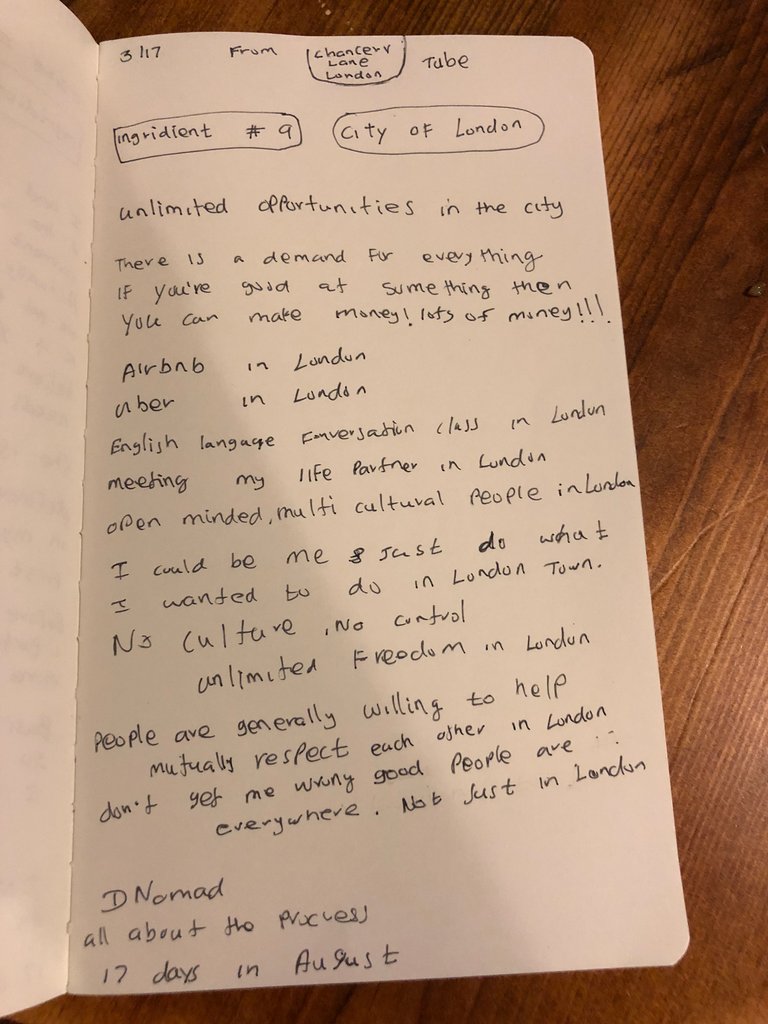 3/17 From Chancery Lane London Tube
ingridient # 9 City of London
unlimited opportunities in the city
There is a demand for everything
If you're good at something then
you can make money! lots of money!!!
Airbnb in London
uber in London
English language conversation class in London
meeting my life Partner in London
open minded, multi cultural people in London
I could be me & Just do what
I wanted to do in London Town.
No culture, No control
unlimited Freedom in London
People are generally willing to help
mutually respect each other in London
don't get me wrong good people are
everywhere. Not Just in London
D Nomad
all about the process
17 days in August